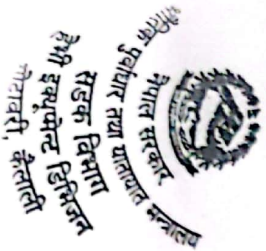 नेपाल सरकार
भौतिक पुर्वाधार तथा यातायात मन्त्रालय
सडक विभाग
हेभी इक्यूपमेन्ट डिभिजन
गोदावरी, कैलाली